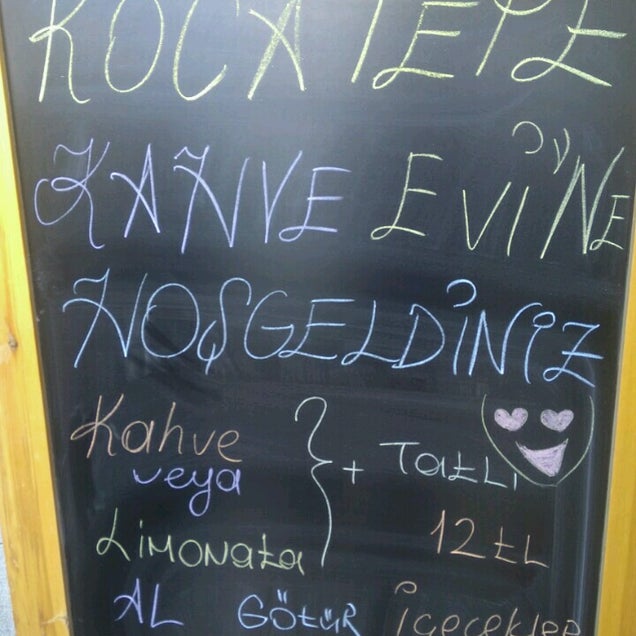 KOCATEPE
KAHVE EVİNE
HOŞGELDİNİZ
Kahve
veya
Limonata
+ Tatlı
12 tL
AL GÖtÜR İçecekler